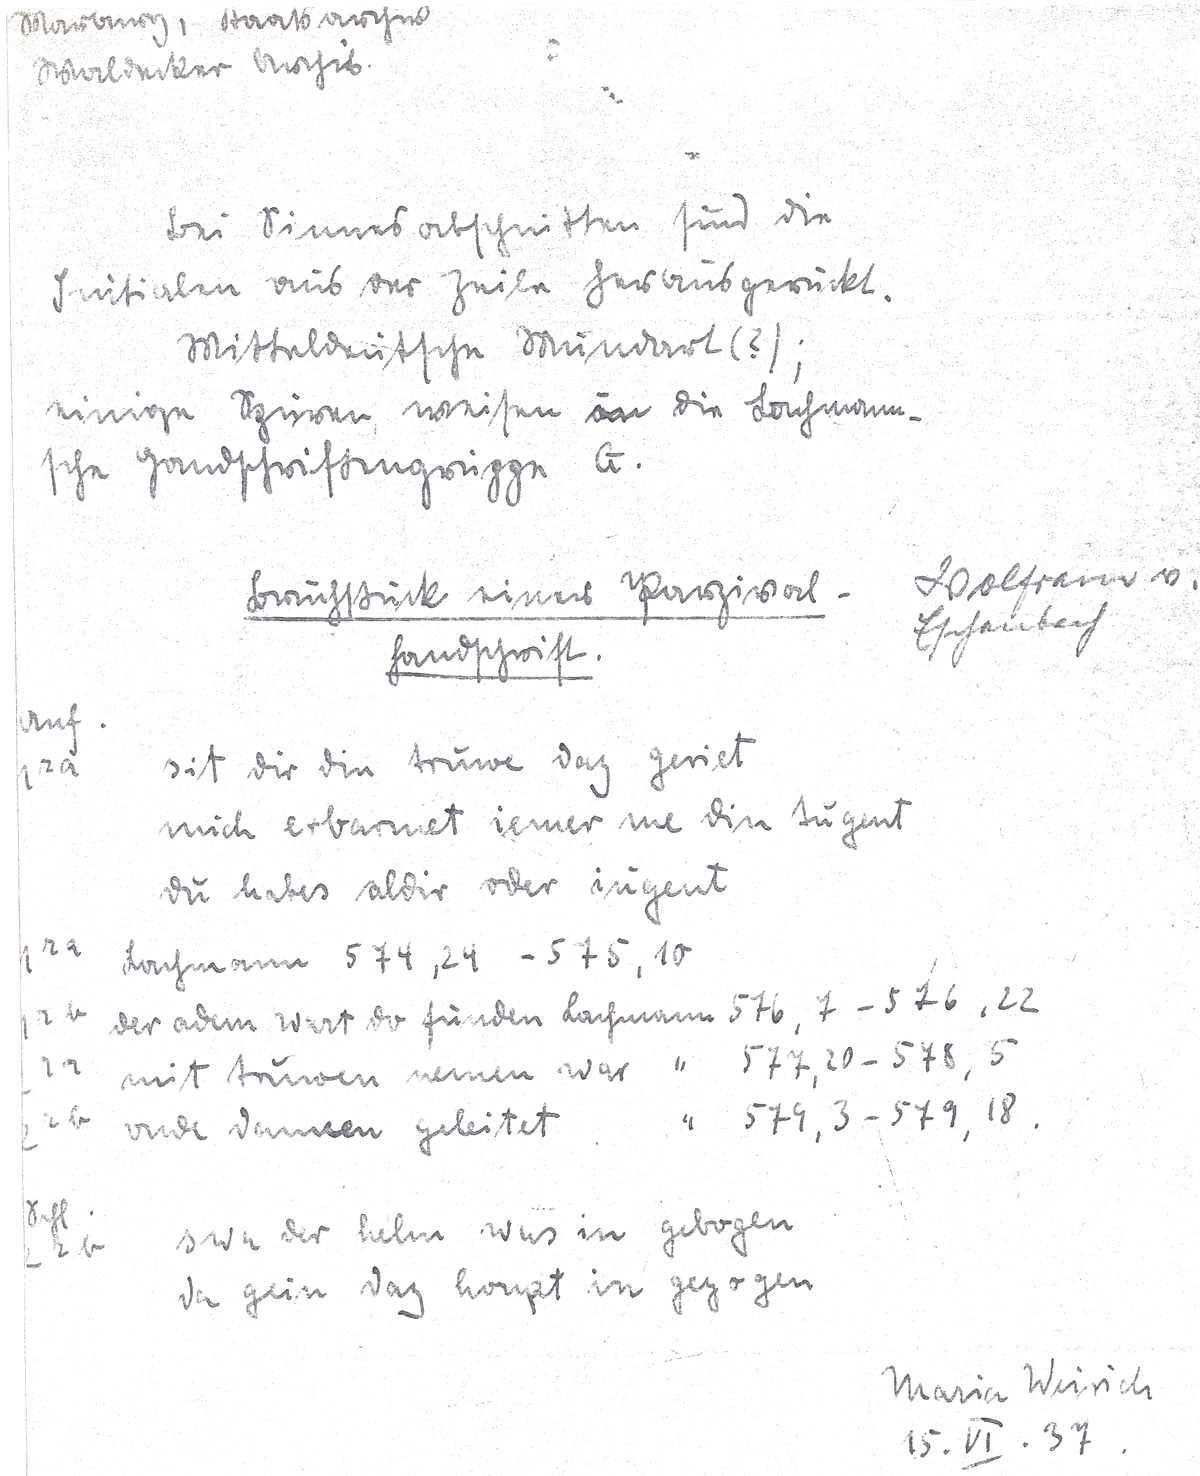 Marburg, Staatsarchiv
Waldecker Archiv.
Bei Sinnesabschnitten sind die
Initialen aus der Zeile herausgerückt.
Mitteldeutsche Mundart (?);
einige Spuren weisen an die Lachmann-
sche Handschriftengruppe G.
Bruchstück einer Parzival-
handschrift.
Wolfram v.
Eschenbach
Anf.
1ra sit dir din truwe daz geriet
mich erbarmet iemer me din tugent
du habes aldir oder iugent
1ra Lachmann 574,24 - 575,10
1rb der adem wart do funden Lachmann 576,7 - 576,22
ra mit truwen nemen war " 577,20 - 578,5
2rb vnde dannen geleitet " 579,3 - 579,18.
Schl.
2rb swa der helm was in gebogen
da gein daz houpt in gezogen
Maria Weirich
15. VI. 37.